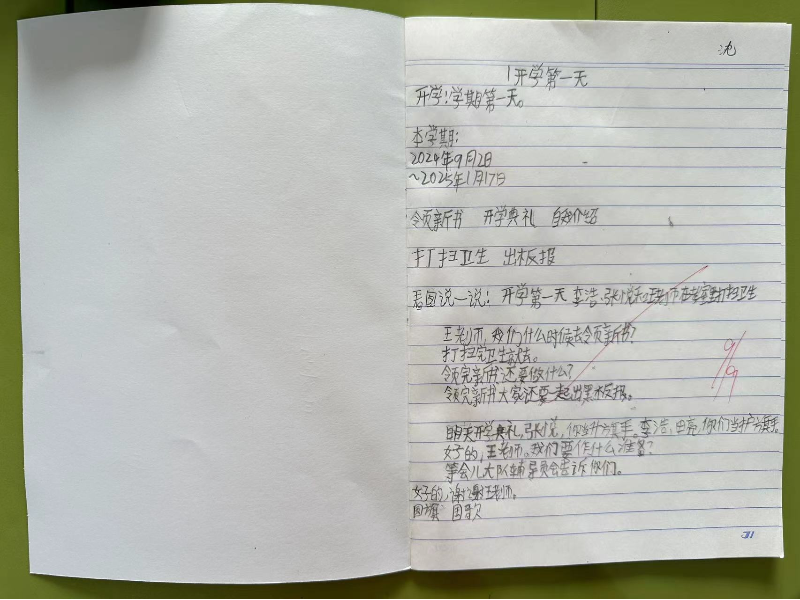 沈
1 开学第一天
开学:学期第一天。
本学期:
2024年9月2日
~2025年1月17日
领新书 开学典礼 自我介绍
打扫卫生 出板报
看图说一说: 开学第一天 李浩、张悦和王老师在教室打扫卫生
王老师,我们什么时候去领新书?
打扫完卫生就去。
领完新书还要做什么?
领完新书大家还要一起出黑板报。
明天开学典礼,张悦,你当升旗手。李浩、田亮,你们当护旗手。
好的,王老师。我们要作什么准备?
等会儿大队辅导员会告诉你们。
好的,谢谢王老师。
国旗 国歌
9/9